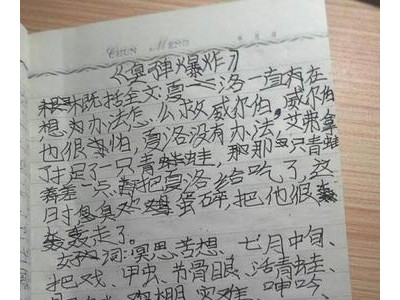 CHUN MENG
《臭神爆炸》
既括全文:夏洛一直有在
想为办法怎么救威尔伯,威尔伯
也很害怕,夏洛没有办法,艾弗拿
了一只青蛙,那只青蛙
差一点把夏洛给吃了,这
时臭鸡蛋碎,把他很
轰走了。
好词:冥思苦想、七月中旬、
把戏、甲虫、节骨眼、活青蛙、
棚、灾难、呻吟